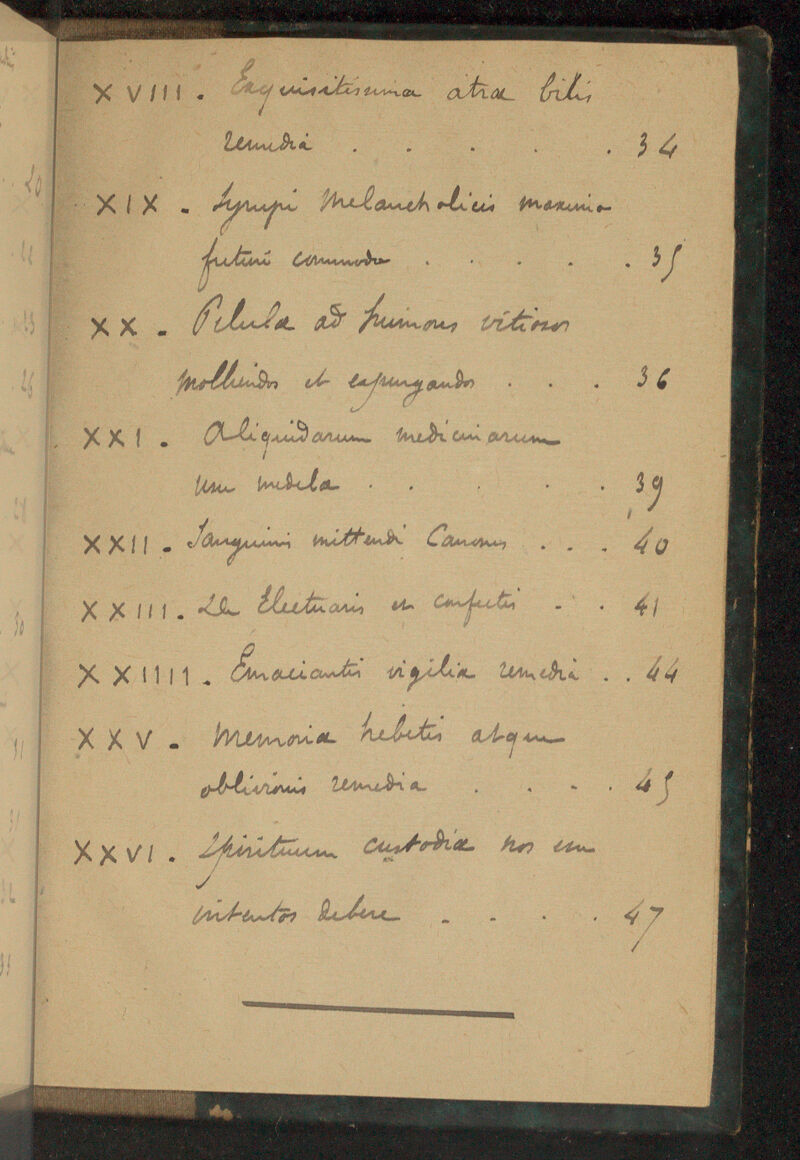 XVIII. Exquisitissima atrae bilis
remedia . . . . . 34
XIX. Syrupi Melancholicis maximo
futuri commodo . . . . . 35
XX. Pilulae ad humores vitiosos
molliendos et expurgandos . . . 36
XXI. Aliquidarum medicinarum
usu medela . . . . . 39
XXII. Sanguinis mittendi Canones . . . 40
XXIII. De Electuaris et confectis . . 41
XXIIII. Emaciantis vigiliae remedia . . 44
XXV. Memoriae hebetis atque
oblivionis remedia . . . . 45
XXVI. Spirituum custodiae nos
intentos debere . . . . 47
20
22
23
26
30
31
31